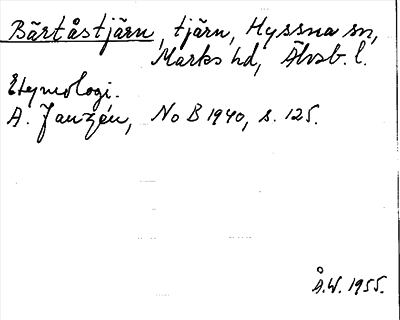 Bärtåstjärn, tjärn, Hyssna sn,
Marks hd, Älvsb. l.
Etymologi.
A. Janzén, NoB 1940, s. 125.
Å.W. 1955.